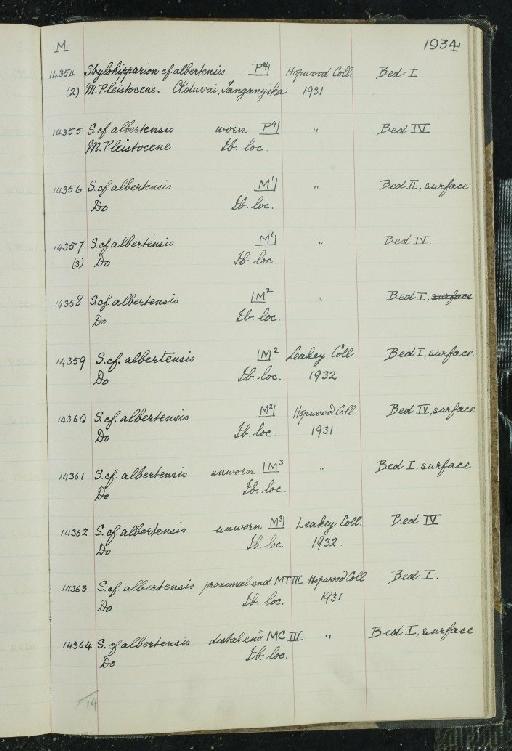 M 1934
14354 Stylohipparion cf albertensis P4| Hopwood Coll. Bed I
(2) M. Pleistocene. Olduvai, Tanganyika 1931
14355 S. cf albertensis worn P4| " Bed IV
M. Pleistocene Ib. loc.
14356 S. cf albertensis M1| " Bed II. surface
Do Ib. loc.
14357 S. cf albertensis M1| " Bed IV.
(3) Do Ib. loc
14358 S. cf albertensis |M2 " Bed I. surface
Do Ib. loc.
14359 S. cf. albertensis |M2 Leakey Coll. Bed I surface
Do Ib. loc. 1932
14360 S. cf. albertensis M2| Hopwood Coll. Bed IV surface
Do Ib. loc. 1931
14361 S. cf albertensis unworn |M3 " Bed I surface
Do Ib. loc.
14362 S. cf albertensis unworn M3| Leakey Coll. Bed IV
Do Ib. loc 1932.
14363 S. cf albertensis proximal end MT III Hopwood Coll Bed I.
Do Ib. loc. 1931
14364 S. cf albertensis distal end MC III. " Bed I. surface
Do Ib. loc.
14